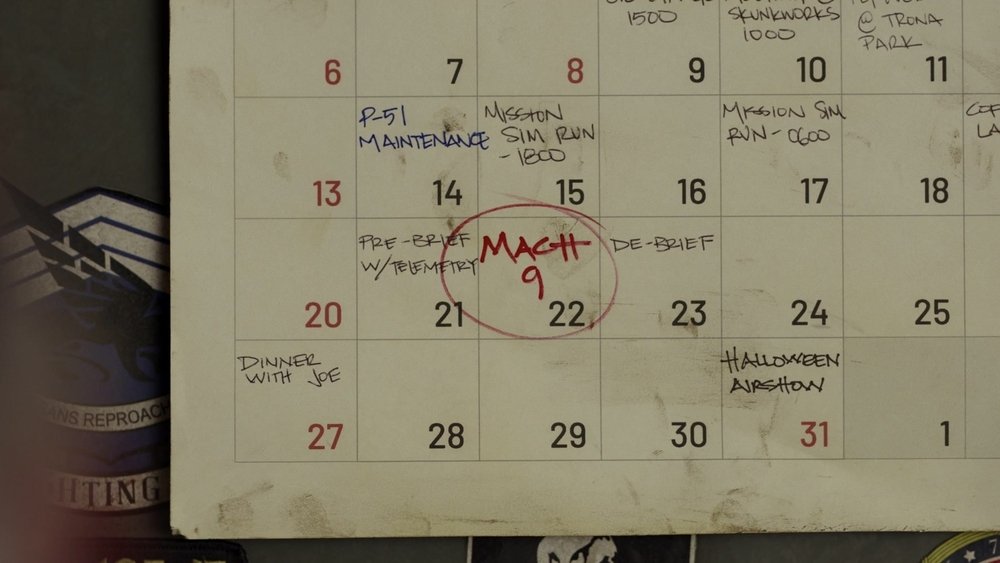 1500
SKUNKWORKS
1000
@ TRONA
PARK
6
7
8
9
10
11
P-51
MAINTENANCE
MISSION
SIM RUN
- 1800
MISSION SIM
RUN - 0600
13
14
15
16
17
18
PRE-BRIEF
W/TELEMETRY
MACH
9
DE-BRIEF
20
21
22
23
24
25
DINNER
WITH JOE
HALLOWEEN
AIRSHOW
27
28
29
30
31
1
ANS REPROACH
HTING